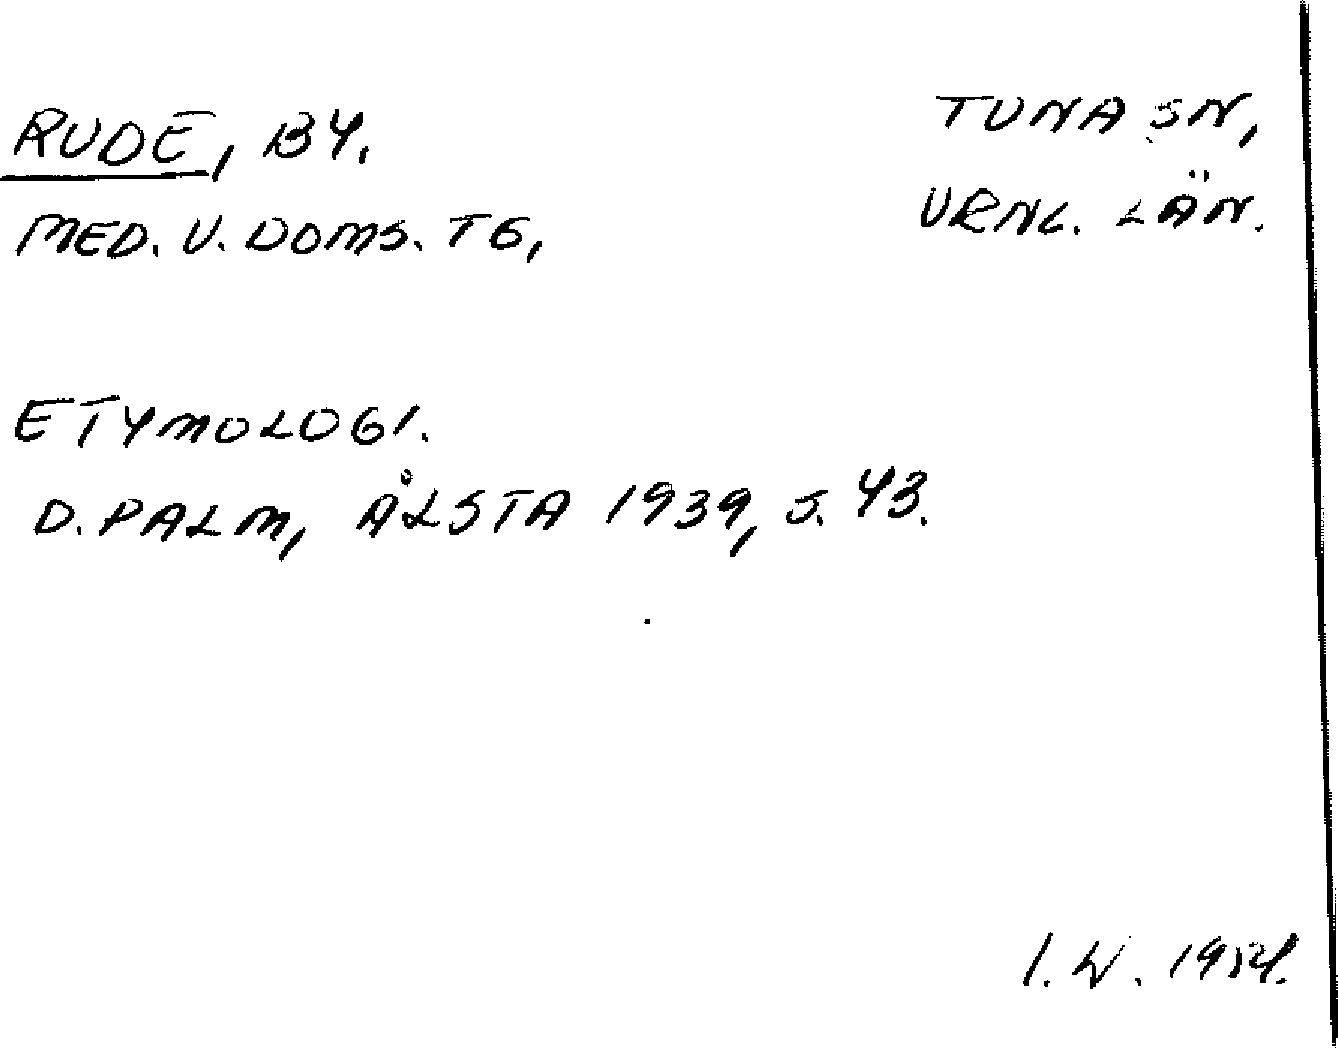 RUDE, BY.
TUNA SN,
MED. V. DOMS. TG,
VRNL. LÄN.
ETYMOLOGI.
D. PALM, ÅLSTA 1939, S. 43.
I. W. 1954.